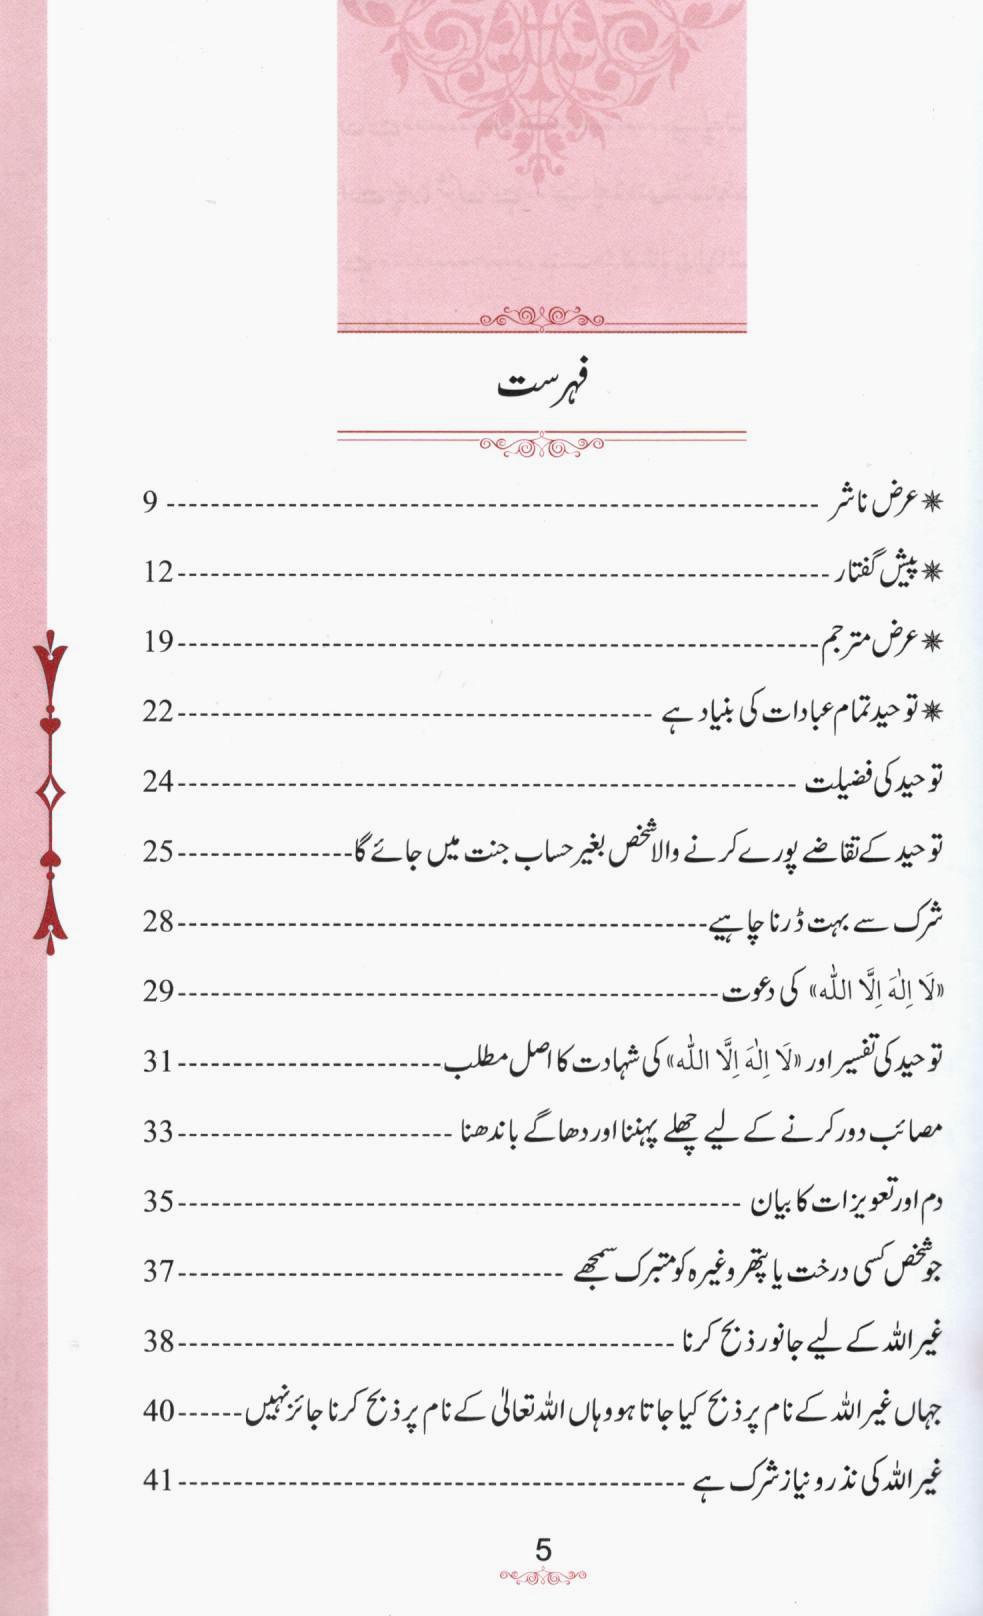 فہرست
✴ عرض ناشر ------------------------------------------------- 9
✴ پیش گفتار ------------------------------------------------- 12
✴ عرض مترجم ------------------------------------------------- 19
✴ توحید تمام عبادات کی بنیاد ہے ------------------------------------- 22
توحید کی فضیلت ------------------------------------------------ 24
توحید کے تقاضے پورے کرنے والا شخص بغیر حساب جنت میں جائے گا -------------- 25
شرک سے بہت ڈرنا چاہیے ----------------------------------------- 28
«لَا اِلٰهَ اِلَّا اللّٰه» کی دعوت ------------------------------------------ 29
توحید کی تفسیر اور «لَا اِلٰهَ اِلَّا اللّٰه» کی شہادت کا اصل مطلب -------------------- 31
مصائب دور کرنے کے لیے چھلے پہننا اور دھاگے باندھنا --------------------- 33
دم اور تعویزات کا بیان ------------------------------------------- 35
جو شخص کسی درخت یا پتھر وغیرہ کو متبرک سمجھے ------------------------------ 37
غیر اللہ کے لیے جانور ذبح کرنا --------------------------------------- 38
جہاں غیر اللہ کے نام پر ذبح کیا جاتا ہو وہاں اللہ تعالیٰ کے نام پر ذبح کرنا جائز نہیں ------ 40
غیر اللہ کی نذر و نیاز شرک ہے --------------------------------------- 41
5